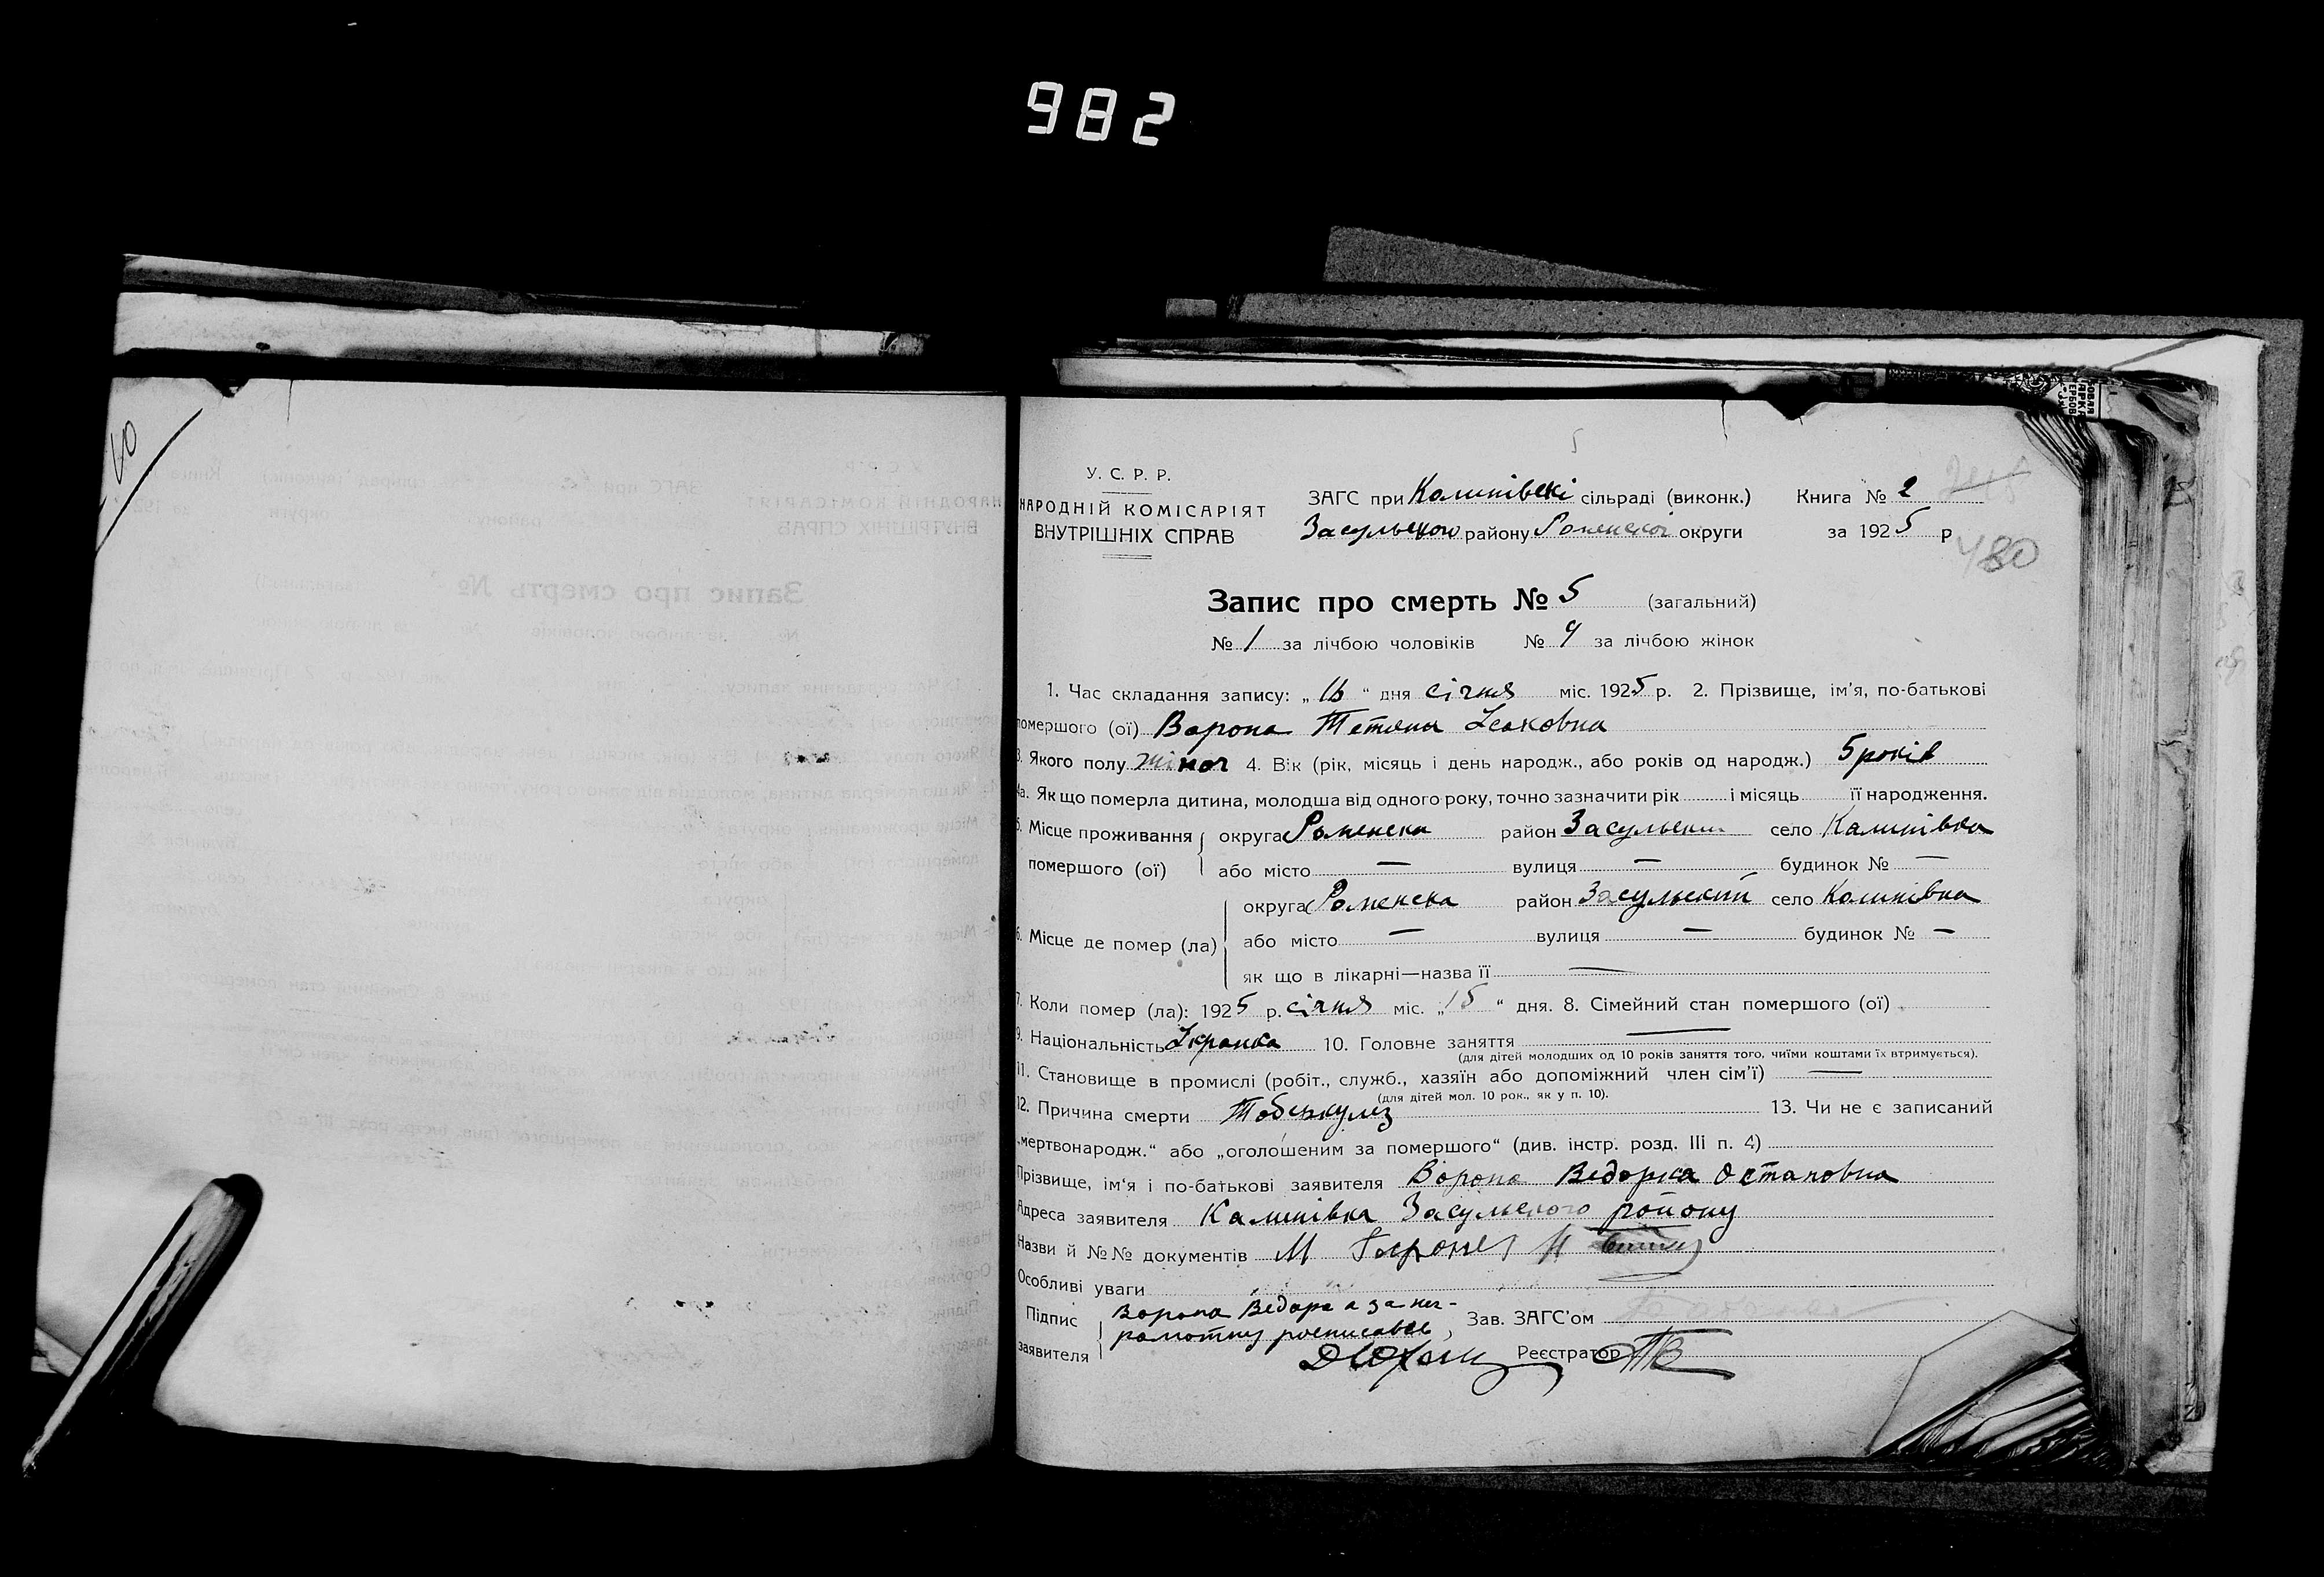 982
У. С. Р. Р.
НАРОДНІЙ КОМІСАРІЯТ
ВНУТРІШНІХ СПРАВ
ЗАГС при Калинівскі сільраді (виконк.) Книга № 2
Засульского району Роменскої округи за 1925 р
480
Запис про смерть № 5 (загальний)
№ 1 за лічбою чоловіків № 4 за лічбою жінок
1. Час складання запису: „16“ дня січня міс. 1925 р. 2. Прізвище, ім'я, по-батькові
помершого (ої) Ворона Тетяна Ісаковна
3. Якого полу жіноч 4. Вік (рік, місяць і день народж., або років од народж.) 5 років
4а. Як що померла дитина, молодша від одного року, точно зазначити рік і місяць її народження.
5. Місце проживання округа Роменска район Засульский село Калинівка
помершого (ої) або місто — вулиця — будинок № —
округа Роменска район Засульский село Калинівка
6. Місце де помер (ла) або місто — вулиця — будинок № —
як що в лікарні—назва її —
7. Коли помер (ла): 1925 р. січня міс. „15“ дня. 8. Сімейний стан помершого (ої)
9. Національність Украінка 10. Головне заняття —
(для дітей молодших од 10 років заняття того, чиїми коштами їх втримується).
11. Становище в промислі (робіт., служб., хазяїн або допоміжний член сім'ї) —
(для дітей мол. 10 рок., як у п. 10).
12. Причина смерти Тоберкулез 13. Чи не є записаний
„мертвонародж.“ або „оголошеним за помершого“ (див. інстр. розд. III п. 4)
Прізвище, ім'я і по-батькові заявителя Ворона Ведорка Остаповна
Адреса заявителя Калинівка Засульского району
Назви й №№ документів
Особливі уваги
Підпис Ворона Ведорка за нег-
рамотну росписався Зав. ЗАГС'ом
заявителя Реєстратор